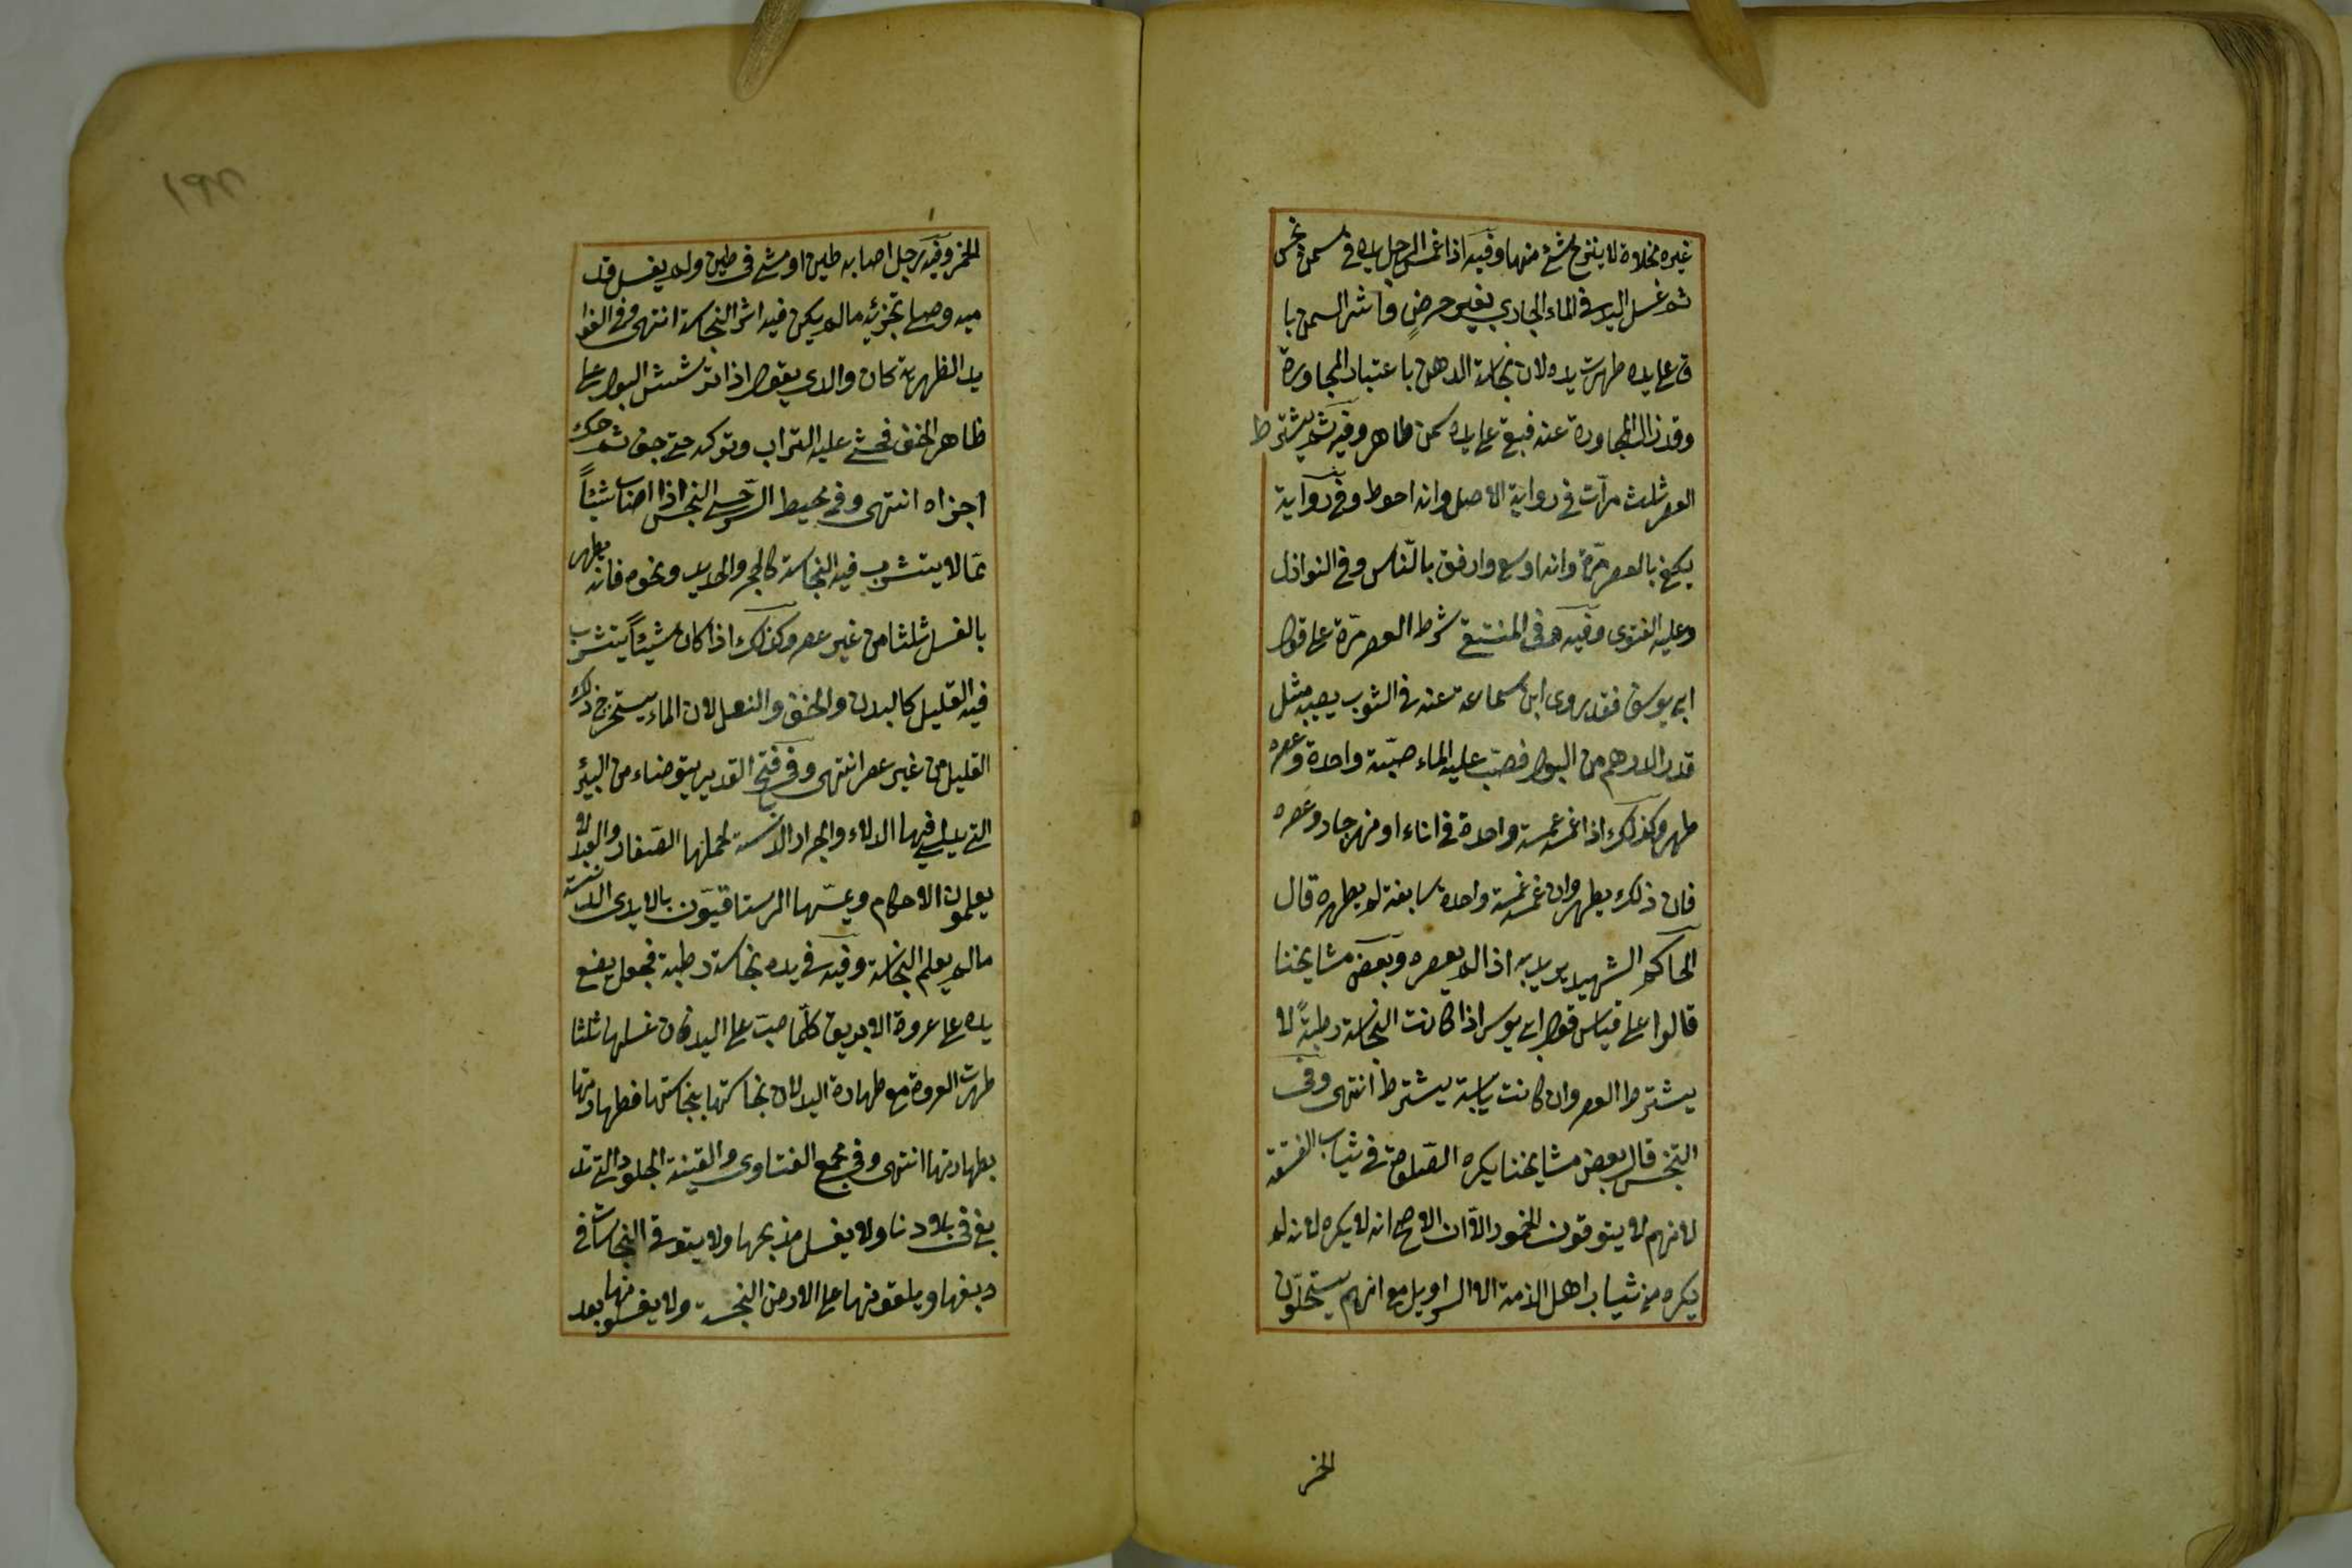 غيره بخلاوة لا ينزح شئ منها وفيه اذا غمس الرجل يده في سمن نجس
ثم غسل اليد في الماء الجاري بغير حرض واثر السمن با
ق على يده طهرت يده لان نجاسة الدهن باعتبار المجاورة
وقد زال المجاورة عنه فبقى على يده سمن طاهر وفيه ثم يشترط
العصر ثلث مرّات في رواية الاصل وانه احوط وفي رواية
يكفي بالعصر مرّة وانه اوسع وارفق بالنّاس وفي النوازل
وعليه الفتوى وفيه في المنتقى شرط العصر مرّة على قول
ابي يوسف فقد روى ابن سماعة عنه في الثوب يصيبه مثل
قدر الدرهم من البول فصبّ عليه الماء صبّة واحدة وعصره
طهر وكذلك اذا غمسه غمسة واحدة في اناء او نهر جار وعصره
فان ذلك يطهره وان غمسه غمسة واحدة سابغة لم يطهره قال
الحاكم الشهيد يريد به اذا لم يعصره وبعض مشايخنا
قالوا على قياس قول ابي يوسف اذا كانت النجاسة رطبةً لا
يشترط العصر وان كانت يابسة يشترط انتهى وفي
التجنيس قال بعض مشايخنا يكره الصّلوة في ثياب الفسقة
لانهم لا يتوقون الخمور الّا ان الاصح انه لا يكره لانه لم
يكره من ثياب اهل الذمة الا السراويل مع انهم يستحلّون
الخمر
الخمر وفيه رجل اصابه طين او مشى في طين ولم يغسل قد
ميه وصلى تجزئه ما لم يكن فيه اثر النجاسة انتهى وفي الفوا
يد الظهيرية كان والدي يقول اذا ترشش البول على
ظاهر الخف فحثى عليه التراب وتركه حتى جف ثم حكه
اجزاه انتهى وفي محيط السرخسي النجس اذا اصاب شيئاً
ممّا لا يتشرب فيه النجاسة كالحجر والحديد ونحوه فانه يطهر
بالغسل ثلثا من غير عصر وكذلك اذا كان شيئاً يتشرب
فيه القليل كالبدن والخف والنعل لان الماء يستخرج ذلك
القليل من غير عصر انتهى وفي فتح القدير يتوضاء من البئر
التي يدلى فيها الدلاء والجرار الدنسة يحملها الصّغار والعبيد لا
يعلمون الاحكام ويمسّها الرستاقيّون بالايدي الدنسة
ما لم يعلم النجاسة وفيه في يده نجاسة رطبة فجعل يضع
يده على عروة الابريق كلّما صبّ على اليد فان غسلها ثلثا
طهرت العروة مع طهارة اليد لان نجاستها بنجاستها فطهارتها
بطهارتها انتهى وفي مجمع الفتاوى والقنية الجلود التي تد
بغ في بلادنا ولا يغسل مذبحها ولا يتوقى النجاسات في
دبغها ويلقونها على الارض النجسة ولا يغسلونها بعد